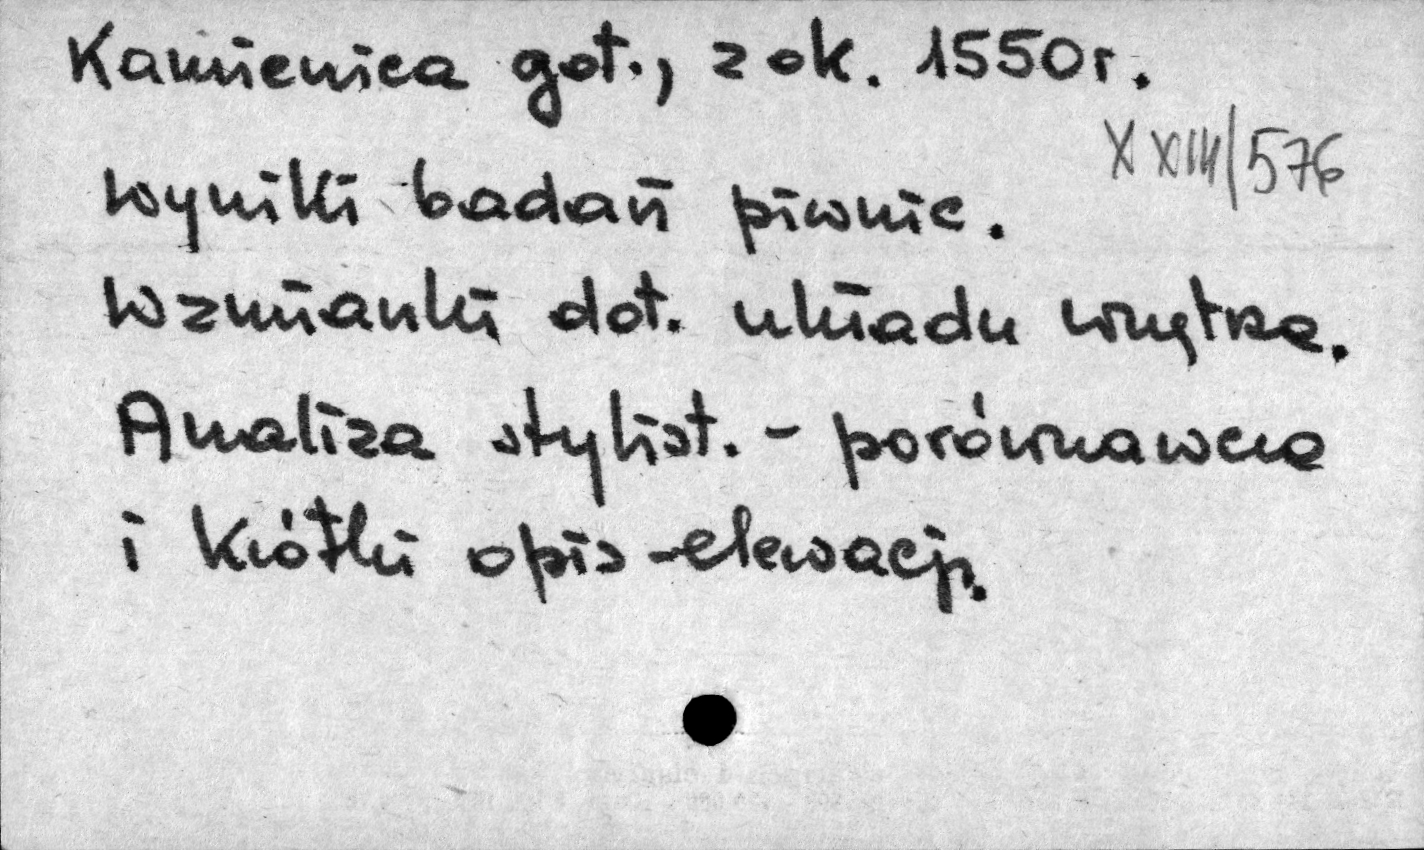 Kamienica got., z ok. 1550r.
XXIII/576
wyniki badań piwnic.
Wzmianki dot. układu wnętrza.
Analiza stylist. - porównawcza
i krótki opis elewacji.